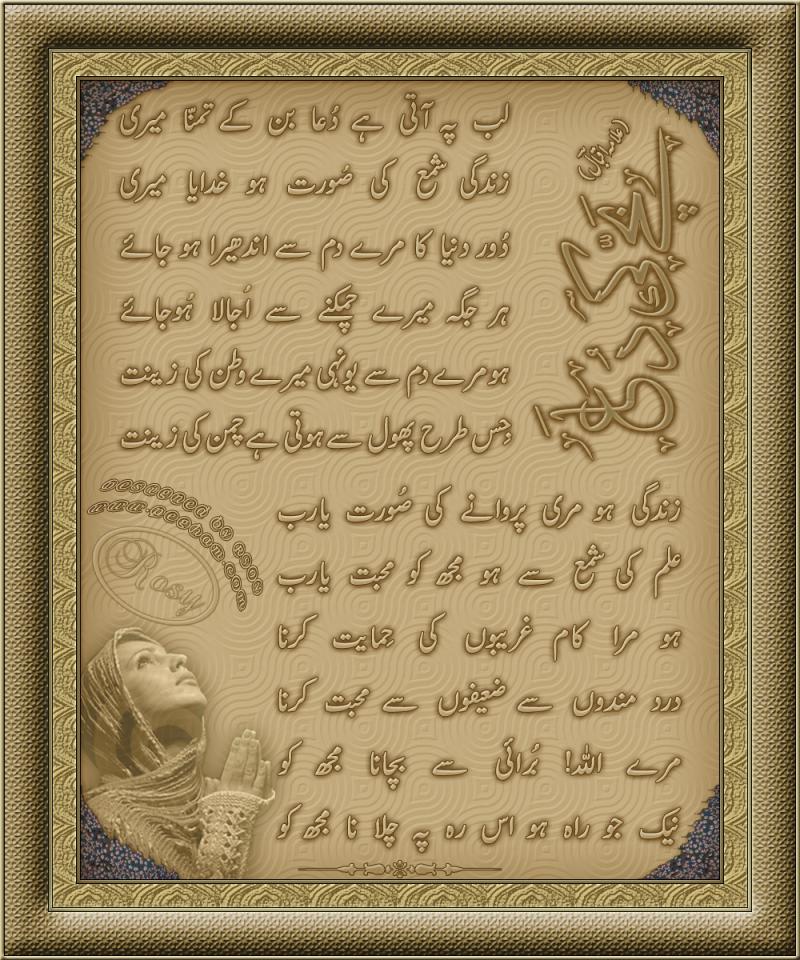 بچے کی دعا
(علامہ اقبال)
لب پہ آتی ہے دُعا بن کے تمنّا میری
زندگی شمع کی صُورت ہو خدایا میری
دُور دنیا کا مرے دم سے اندھیرا ہو جائے
ہر جگہ میرے چمکنے سے اُجالا ہُوجائے
ہو مرے دم سے یونہی میرے وطن کی زینت
جِس طرح پھول سے ہوتی ہے چمن کی زینت
زندگی ہو مری پروانے کی صُورت یارب
علم کی شمع سے ہو مجھ کو محبت یارب
ہو مرا کام غریبوں کی حِمایت کرنا
درد مندوں سے ضعیفوں سے محبت کرنا
مرے اللہ! بُرائی سے بچانا مجھ کو
نیک جو راہ ہو اس رہ پہ چلا نا مجھ کو
Designed by Rosy
Rosy